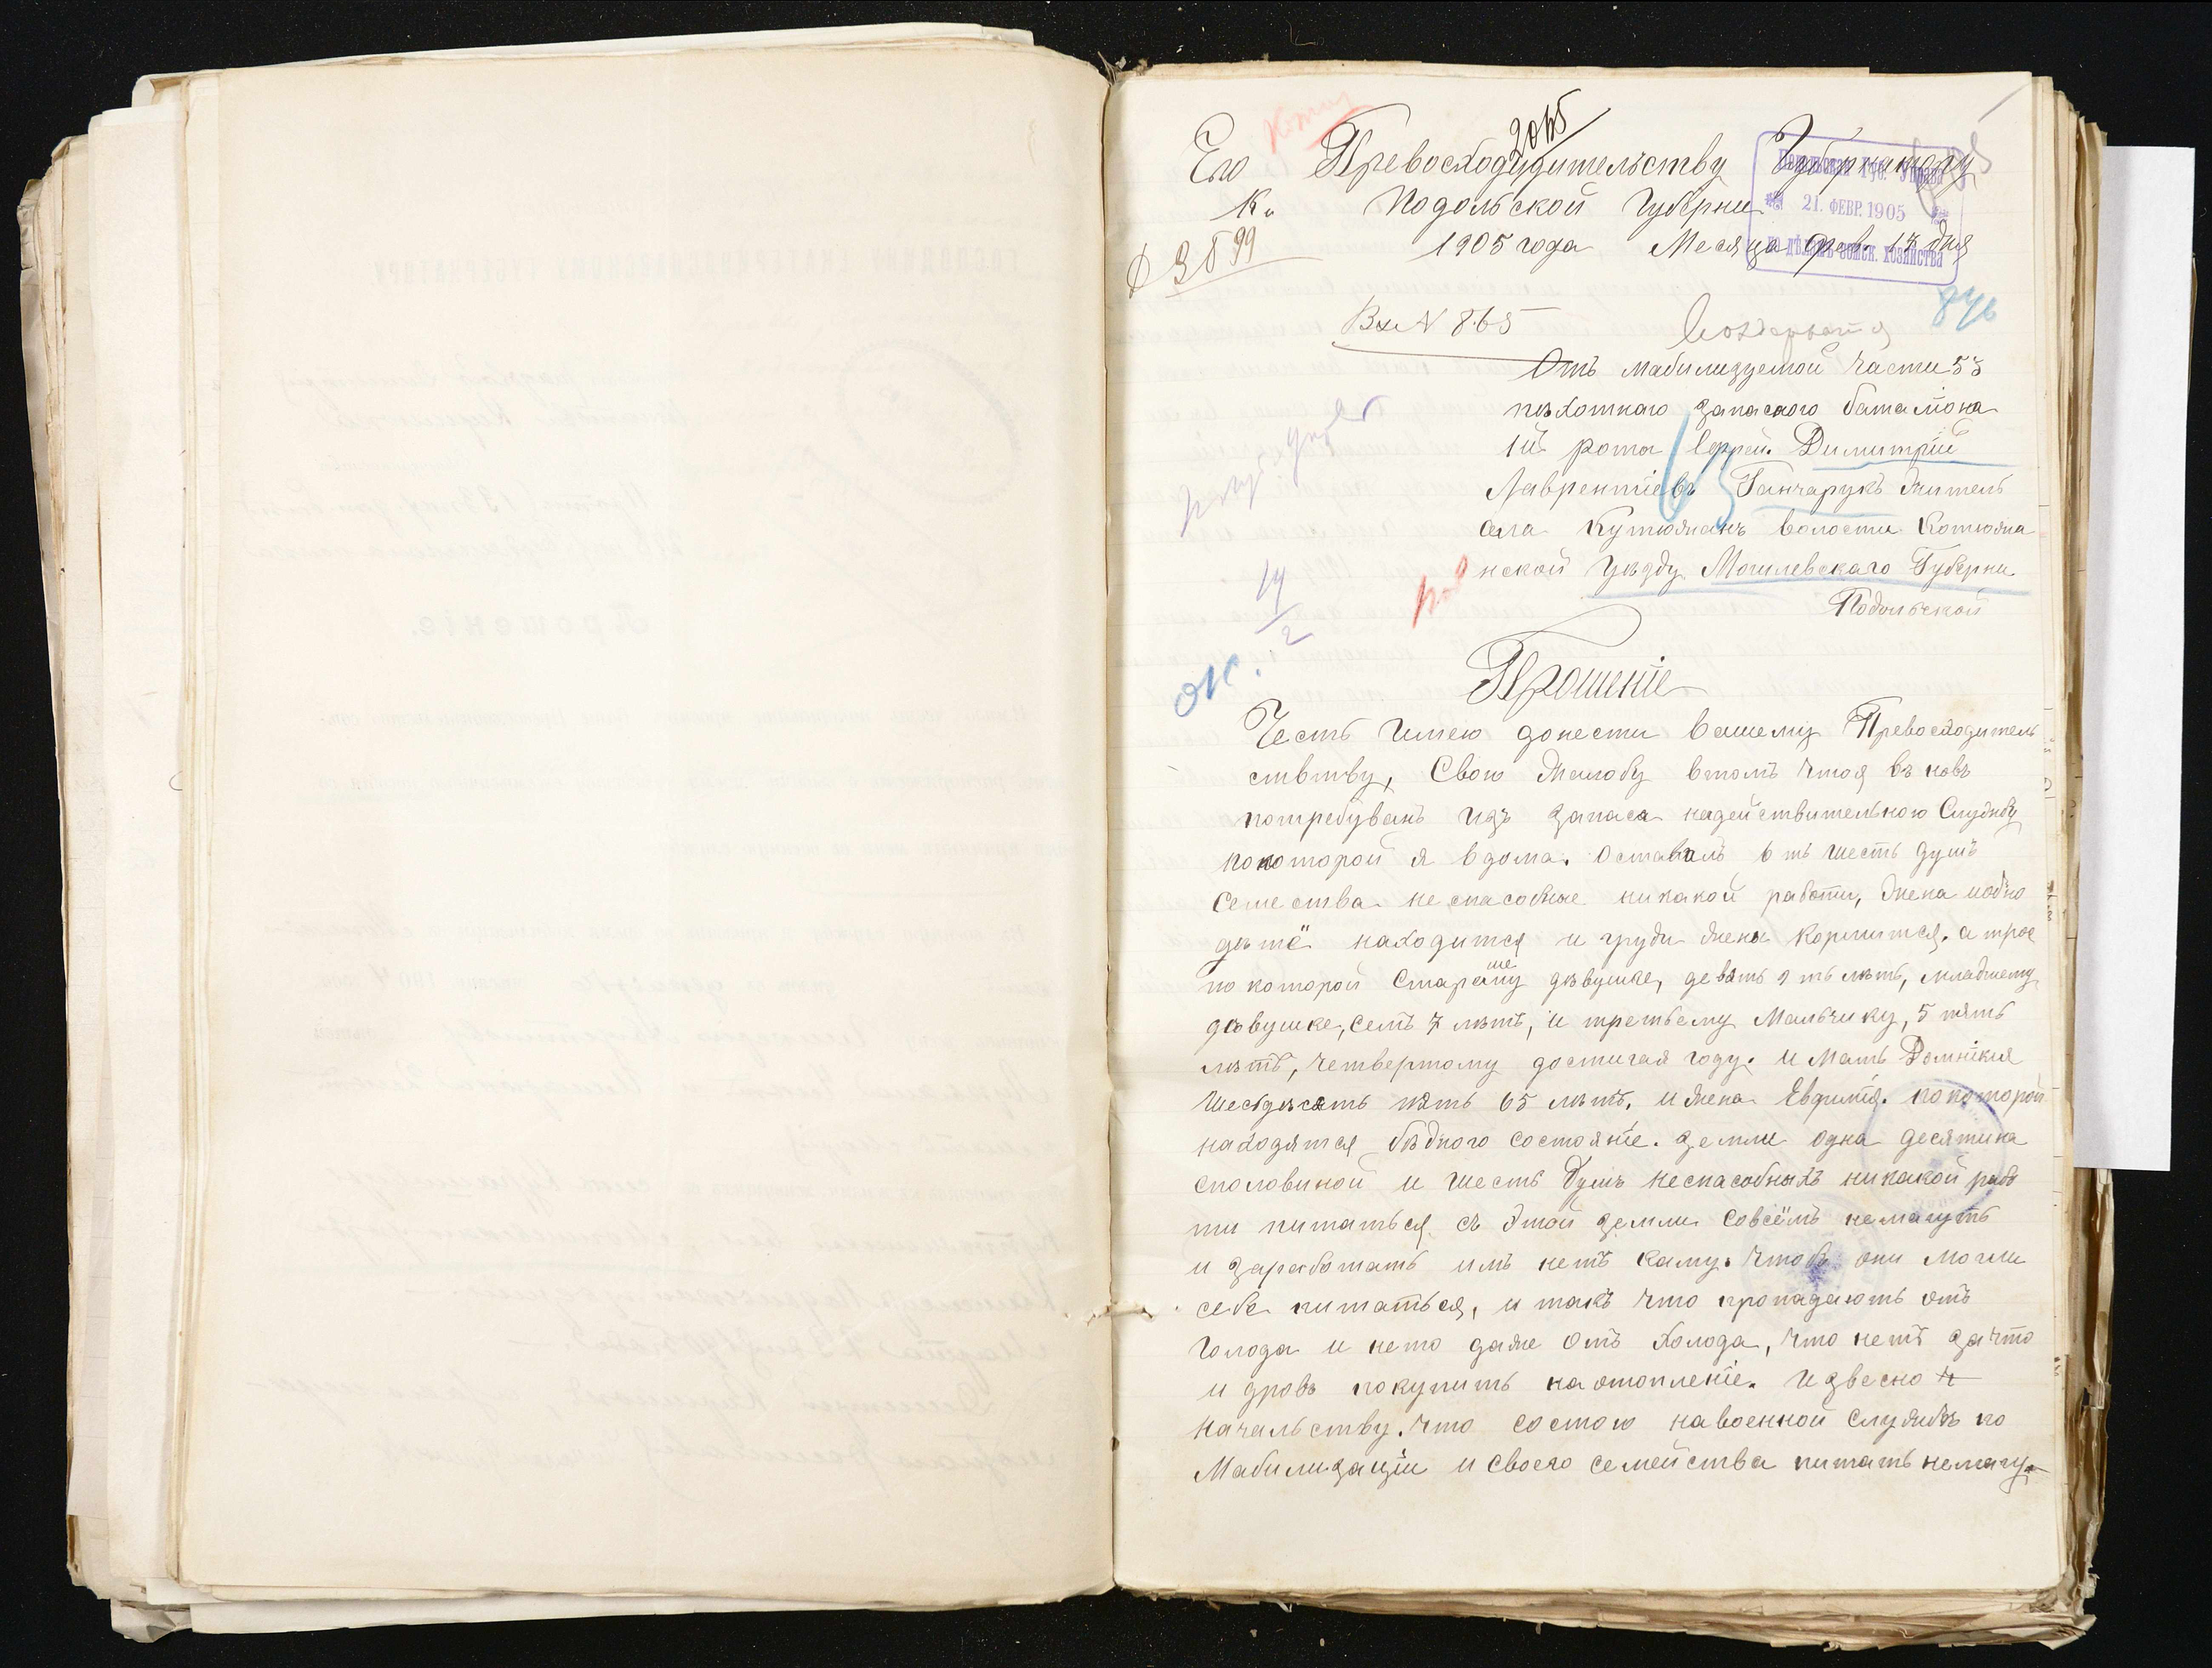 2065
Его Превосходудительству Губернатору
К. Подольской Губерни
Подольская Губ. Управа
21. ФЕВР. 1905
по дѣламъ земск. хозяйства
1905 года Месяца Фев. 13 дня
Вх N 865
Отъ мабилизуемой части 53
пѣхотнаго запаснаго баталіона
1й рота Ефрей. Димитрій
Лаврентіевъ Ганчарукъ житель
села Кутюжанъ волости Котюжа
нской Уѣзду Могилевскаго Губерни
Подольской
14/2
Прошеніе
Честь Имею донести вашему Превосходитель
ствтву, Свою Жалобу втомъ Чтоя въ новъ
потребуванъ Изъ запаса надействительною Службу
покоторой я вдома. Оставилъ 6 ть шесть душъ
Семества неспасобные никакой работи, Жена иодно
дѣтё находится и груди жены кормится, а трое
по которой Старшему дѣвушке, девять 9 ть лѣтъ, младшему
дѣвушке, семъ 7 лѣтъ, и третьему Мальчику, 5 пять
лѣтъ, четвертому достигая году. и Мать Домнікия
Шесьдѣсять пять 65 лѣтъ. и жена Евфимія. по которой
находятся бѣдного состояніе. Земли одна десятина
сполавиной и шесть Душъ неспасобныхъ никакой рабо
ти питаться съ этой земли Совсёмъ немагутъ
и заработать имъ нетъ каму. Чтобъ они могли
себе питаться, и такъ что пропадаютъ отъ
Голода и нето даже отъ Холода, что нетъ зачто
и дровъ покупить наотопленіе. Извесно
начальству. Что состою навоенной службѣ по
Мабилизаціи и своего семейства питать немагу